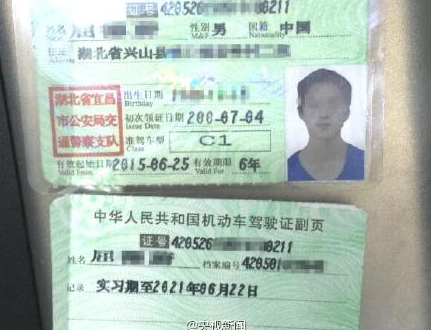 证号 420526 0211
姓名 性别 男 国籍 中国
Name M&F Nationality
住址 湖北省兴山县
出生日期
Birthday
湖北省宜昌
市公安局交
通警察支队
初次领证日期 200-07-04
Issue Date
准驾车型 C1
Class
有效起始日期 2015-06-25 有效期限 6年
Valid From Valid For
中华人民共和国机动车驾驶证副页
证号 420526 0211
姓名 档案编号 420501
记录 实习期至2021年06月22日
@央视新闻